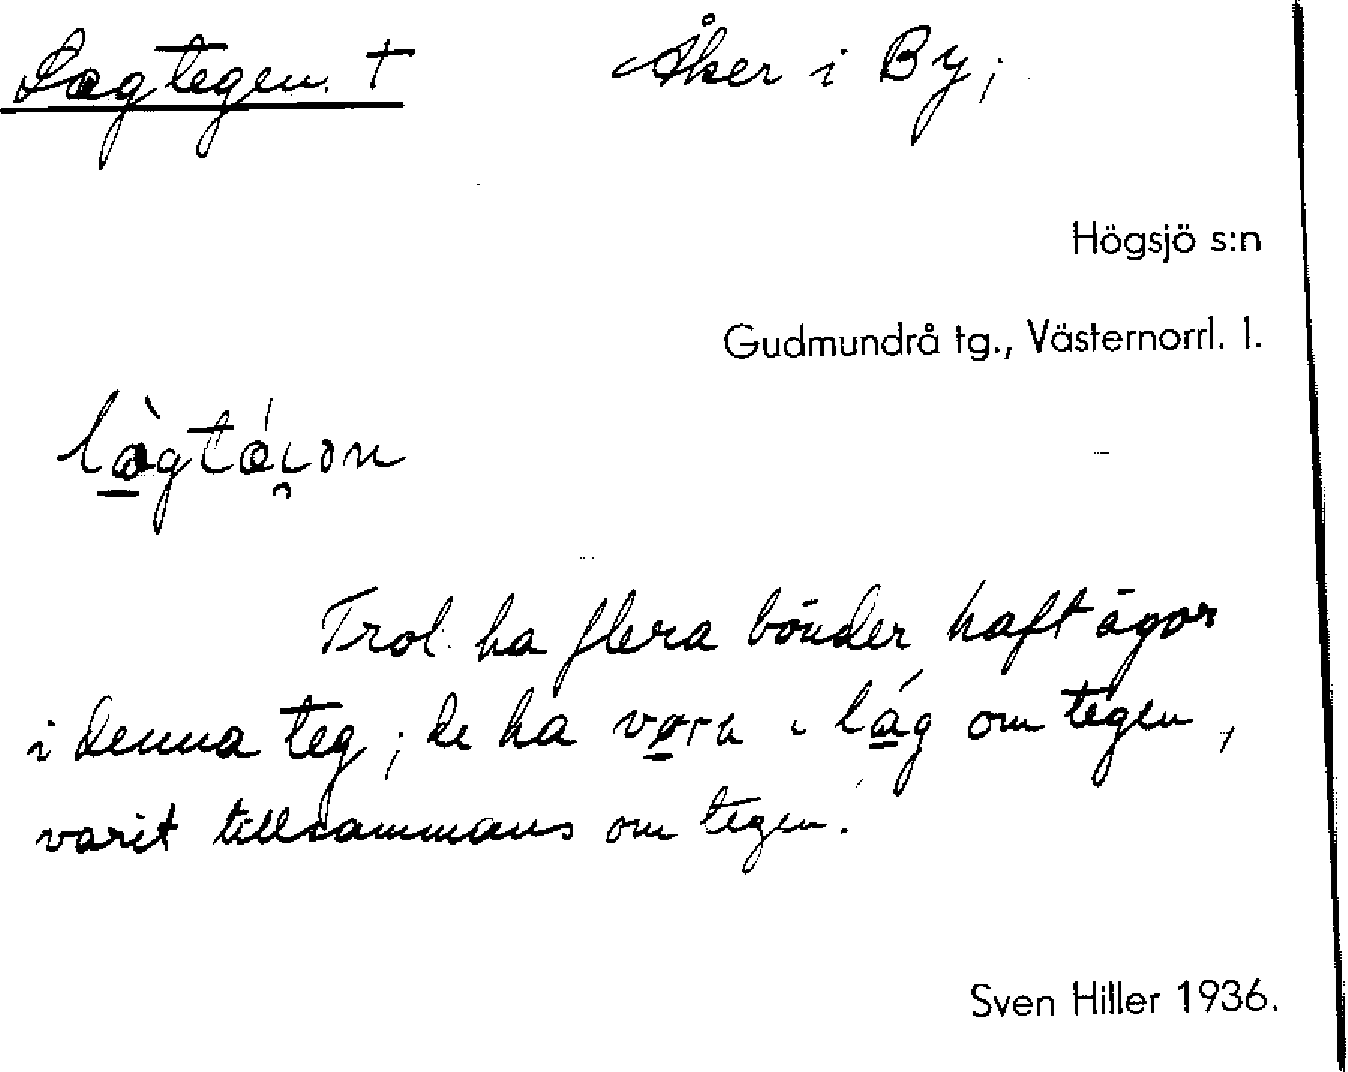 Lagtegen. † Åker i By;
Högsjö s:n
Gudmundrå tg., Västernorrl. l.
Trol. ha flera bönder haft ägor
i denna teg; de ha vara i lág om tegen,
varit tillsammans om tegen.
Sven Hiller 1936.